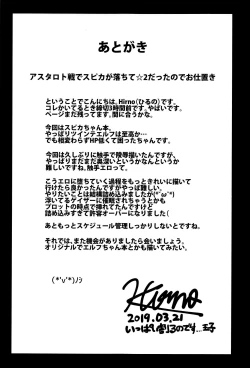 あとがき
アスタロト戦でスピカが落ちて☆2だったのでお仕置き
ということでこんにちは、Hirno(ひるの)です。
コレかいてるとき締切3時間前です。やばいです。
ページまだ残ってます。間に合うかな。
今回はスピカちゃん本。
やっぱりツインテエルフは至高か…
でも相変わらずHP低くて困ったちゃんです。
今回は久しぶりに触手で陵辱描いたんですが、
やっぱりまだまだ奥深いというかなんというか
難しいですね、触手エロって。
こうエロに堕ちていく過程をもっときれいに描いて
行けたら良かったんですがやっぱ難しい。
やりたいことは結構詰め込みましたが(*'ω'*)
浮いてるゲイザーに催眠されちゃうとかも
プロットの時点で挿れてたんですけど
詰め込みすぎて許容オーバーになりました(
あともっとスケジュール管理しっかりしないとですね。
それでは、また機会がありましたら会いましょう。
オリジナルでエルフちゃん本とかも描いてみたい。
(*'ν'*)ﾉｼ
Hirno
2019.03.21